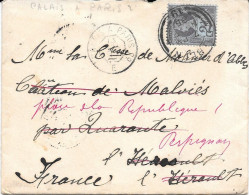 PALAIS A PARIS ?
Mme la Ctesse de
Château de Malviès
place de la République
par Quarante
Perpignan
l'Hérault
France l'Hérault